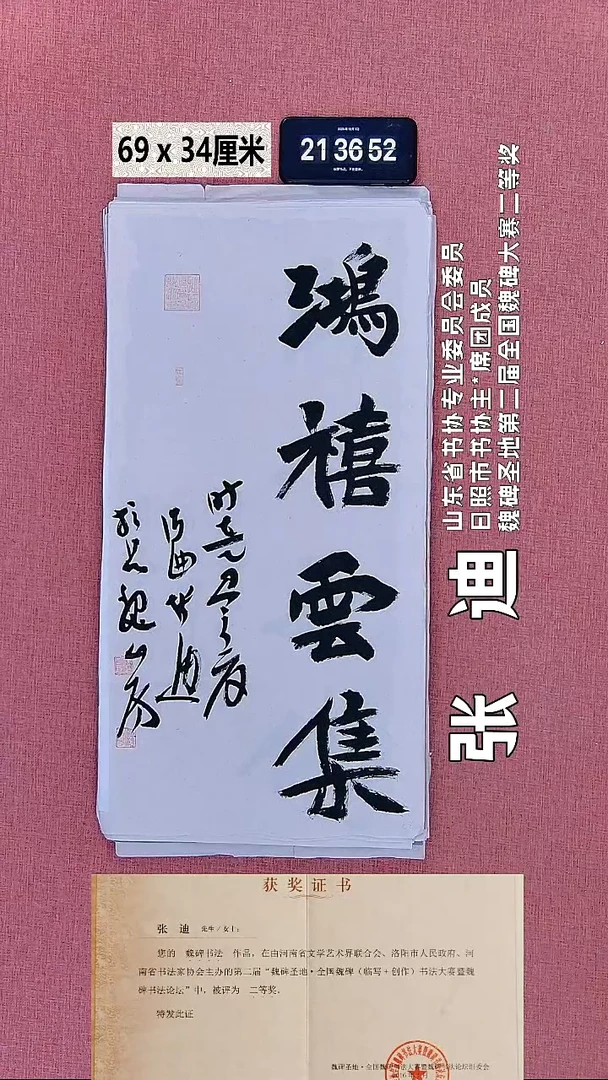 69 x 34厘米
21 36 52
鴻禧雲集
山东省书协专业委员会委员
日照市书协主*席团成员
魏碑圣地第二届全国魏碑大赛二等奖
张 迪
获奖证书
张 迪 先生/女士:
您的 魏碑书法 作品,在由河南省文学艺术界联合会、洛阳市人民政府、河
南省书法家协会主办的第二届“魏碑圣地·全国魏碑(临写+创作)书法大赛暨魏
碑书法论坛”中,被评为 二等奖。
特发此证